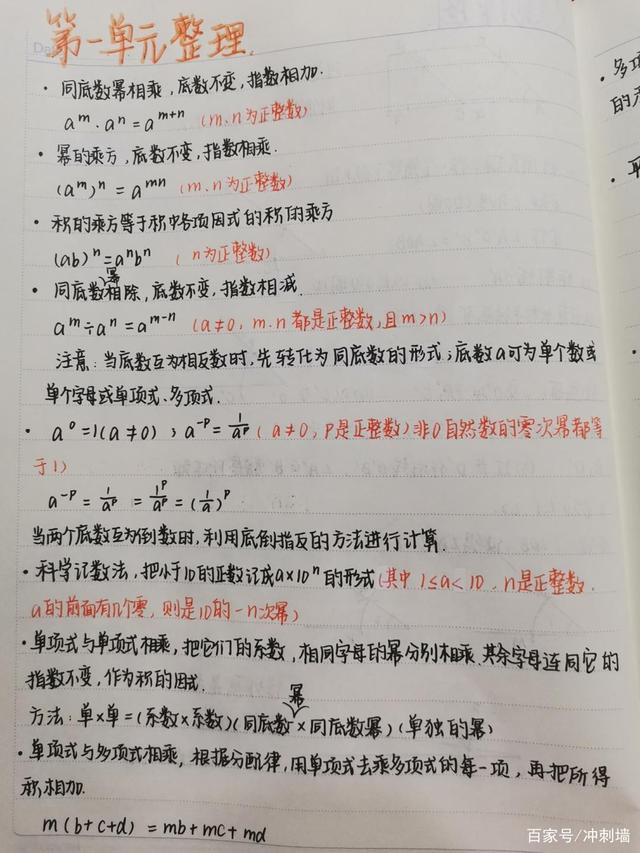 第一单元整理
· 同底数幂相乘，底数不变，指数相加.
aᵐ·aⁿ=aᵐ⁺ⁿ (m、n为正整数)
· 幂的乘方，底数不变，指数相乘.
(aᵐ)ⁿ = aᵐⁿ (m、n为正整数)
· 积的乘方等于积中各项因式的积的乘方
(ab)ⁿ=aⁿbⁿ ( n为正整数)
· 同底数幂相除，底数不变，指数相减.
aᵐ÷aⁿ=aᵐ⁻ⁿ (a≠0, m、n都是正整数,且m>n)
注意：当底数互为相反数时，先转化为同底数的形式；底数a可为单个数或
单个字母或单项式、多项式.
· a⁰=1(a≠0)；a⁻ᵖ=1/aᵖ (a≠0, P是正整数)非0自然数的零次幂都等
于1)
a⁻ᵖ = 1/aᵖ = 1ᵖ/aᵖ = (1/a)ᵖ
当两个底数互为倒数时，利用底倒指反的方法进行计算.
· 科学记数法，把小于10的正数记成a×10ⁿ的形式(其中1≤a<10，n是正整数.
a的前面有几个零，则是10的-n次幂)
· 单项式与单项式相乘，把它们的系数，相同字母的幂分别相乘.其余字母连同它的
指数不变，作为积的因式.
方法：单×单=(系数×系数)(同底数幂×同底数幂)(单独的幂)
· 单项式与多项式相乘，根据分配律，用单项式去乘多项式的每一项，再把所得
积相加.
m(b+c+d) = mb+mc+md
· 多项
的
百家号/冲刺墙